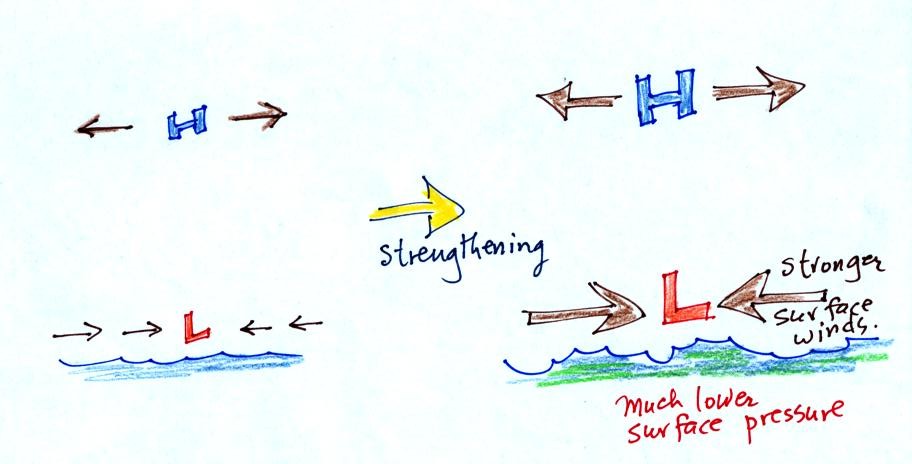 H
H
strengthening
L
L
stronger
surface
winds.
Much lower
surface pressure